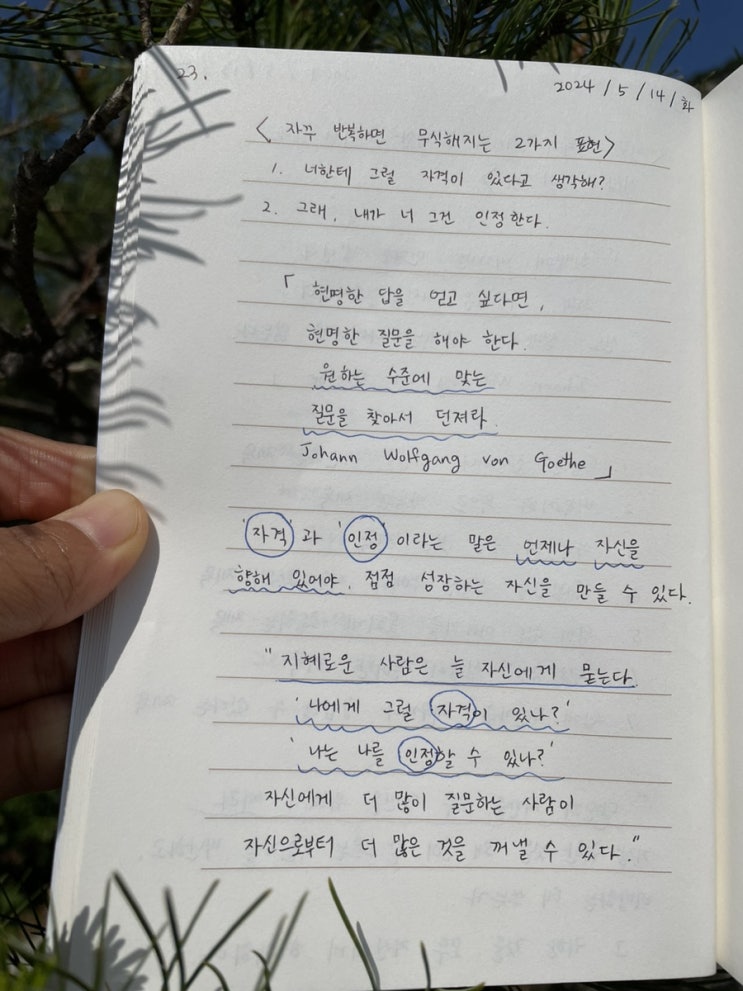 23.
2024 / 5 / 14 / 화
< 자꾸 반복하면 무식해지는 2가지 표현>
1. 너한테 그럴 자격이 있다고 생각해?
2. 그래, 내가 너 그건 인정한다.
「 현명한 답을 얻고 싶다면,
현명한 질문을 해야 한다.
원하는 수준에 맞는
질문을 찾아서 던져라.
Johann Wolfgang von Goethe 」
'자격'과 '인정'이라는 말은 언제나 자신을
향해 있어야, 점점 성장하는 자신을 만들 수 있다.
"지혜로운 사람은 늘 자신에게 묻는다.
'나에게 그럴 자격이 있나?'
'나는 나를 인정할 수 있나?'
자신에게 더 많이 질문하는 사람이
자신으로부터 더 많은 것을 꺼낼 수 있다."